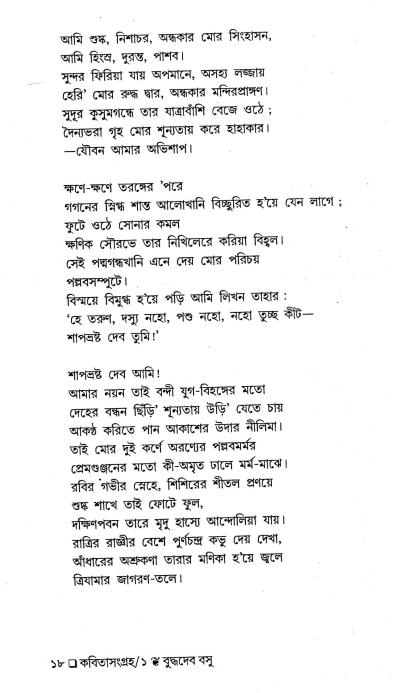 আমি শুষ্ক, নিশাচর, অন্ধকার মোর সিংহাসন,
আমি হিংস্র, দুরন্ত, পাশব।
সুন্দর ফিরিয়া যায় অপমানে, অসহ্য লজ্জায়
হেরি’ মোর রুদ্ধ দ্বার, অন্ধকার মন্দিরপ্রাঙ্গণ।
সুদূর কুসুমগন্ধে তার যাত্রাবাঁশি বেজে ওঠে ;
দৈন্যভরা গৃহ মোর শূন্যতায় করে হাহাকার।
—যৌবন আমার অভিশাপ।

ক্ষণে-ক্ষণে তরঙ্গের ’পরে
গগনের স্নিগ্ধ শান্ত আলোখানি বিচ্ছুরিত হ’য়ে যেন লাগে ;
ফুটে ওঠে সোনার কমল
ক্ষণিক সৌরভে তার নিখিলেরে করিয়া বিহ্বল।
সেই পদ্মগন্ধখানি এনে দেয় মোর পরিচয়
পল্লবসম্পুটে।
বিস্ময়ে বিমুগ্ধ হ’য়ে পড়ি আমি লিখন তাহার :
‘হে তরুণ, দস্যু নহো, পশু নহো, নহো তুচ্ছ কীট—
শাপভ্রষ্ট দেব তুমি!’

শাপভ্রষ্ট দেব আমি!
আমার নয়ন তাই বন্দী যুগ-বিহঙ্গের মতো
দেহের বন্ধন ছিঁড়ি’ শূন্যতায় উড়ি’ যেতে চায়
আকণ্ঠ করিতে পান আকাশের উদার নীলিমা।
তাই মোর দুই কর্ণে অরণ্যের পল্লবমর্মর
প্রেমগুঞ্জনের মতো কী-অমৃত ঢালে মর্ম-মাঝে।
রবির গভীর স্নেহে, শিশিরের শীতল প্রণয়ে
শুষ্ক শাখে তাই ফোটে ফুল,
দক্ষিণপবন তারে মৃদু হাস্যে আন্দোলিয়া যায়।
রাত্রির রাজ্ঞীর বেশে পূর্ণচন্দ্র কভু দেয় দেখা,
আঁধারের অশ্রুকণা তারার মণিকা হ’য়ে জ্বলে
ত্রিযামার জাগরণ-তলে।

১৮ ❑ কবিতাসংগ্রহ/১ ❦ বুদ্ধদেব বসু